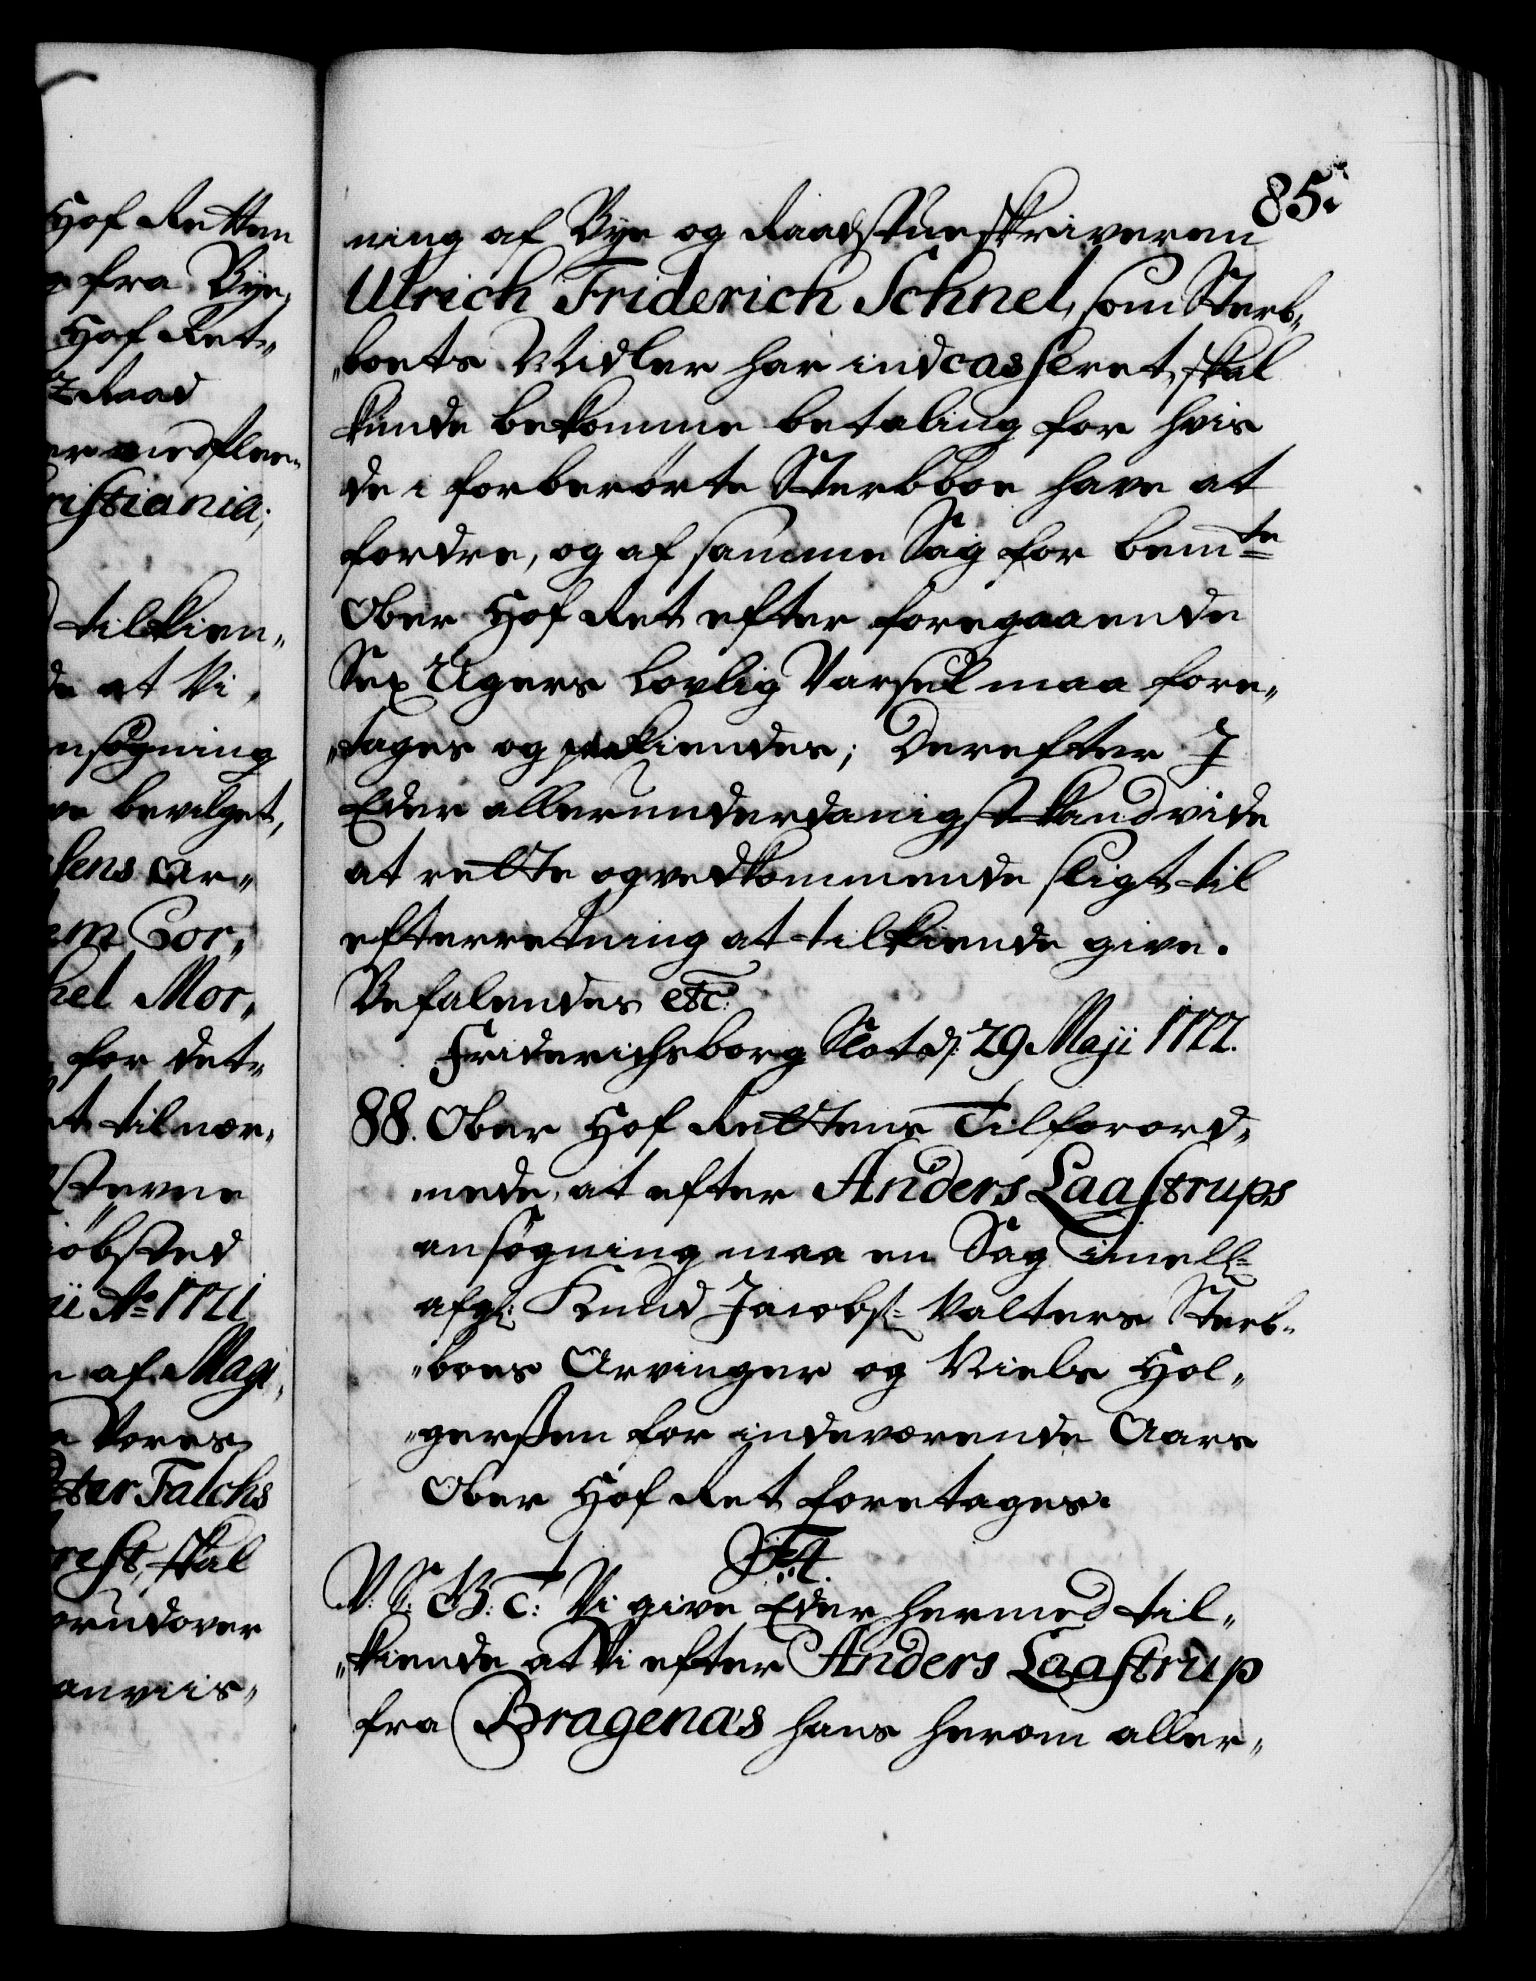 Hof Retten
fra Bye,
Hof Ret„
Raad
ristiania;
tilkien„
de at Vi,
nsøgning
ve bevilget,
sens Ar„
em Cor„
hel Mor„
for det„
et til nær„
Stevne
iøbsted
ii Ao 1721
af Magi„
Vores
ter Falchs
rest, skal
orudover
anviis„
85.
ning af Bye og Raadstueskriveren
Ulrich Friderich Schnel, som Sterb„
„boets Midler har indcasseret, skal
kunde bekomme betaling for hvis
de i forberørte Sterbboe have at
fordre, og af samme Sag for bemte
Ober Hof Ret efter foregaaende
Sex Ugers lovlig Varsel maa fore„
„tages og paakiendes; Derefter I
Eder allerunderdanigst kand vide
at rette og vedkommende sligt til
efterretning at tilkiende give.
Befalendes etc:
Friderichsborg Slot d: 29 Maji 1722.
88. Ober Hof Rettens Tilforord„
nede, at efter Anders Laastrups
ansøgning maa en Sag imell:
afg: Knud Jacobs: Valters Sterb„
„boes Arvinger og Niels Hol„
„gerssen for indeværende Aars
Ober Hof Ret foretages.
F. 4.
V: S: G: B: T: Vi give Eder hermed til„
„kiende at Vi efter Anders Laastrup
fra Bragenæs hans herom aller„